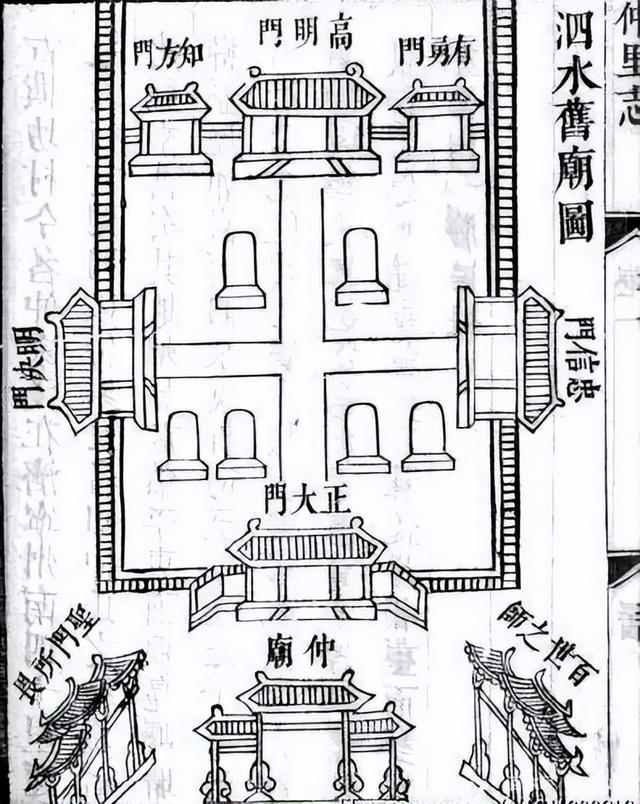 仲里志
泗水舊廟圖
有勇門
高明門
知方門
忠信門
明決門
正大門
百世之師
仲廟
聖門所